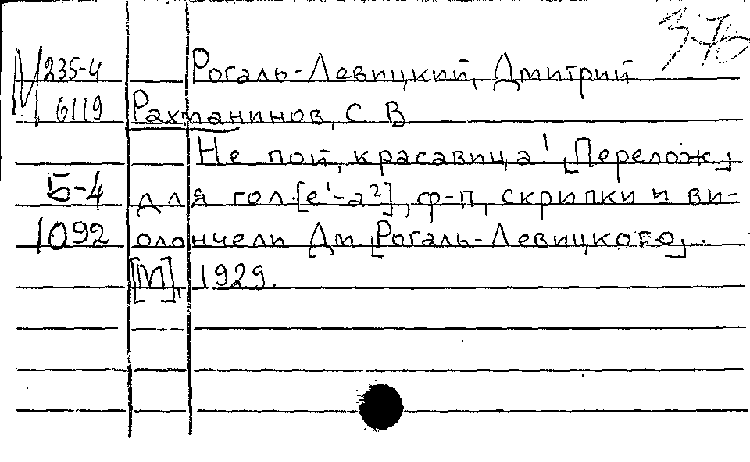 3-76
М 235-4 Рогаль-Левицкий, Дмитрий
6119 Рахманинов, С. В.
Не пой, красавица! [Перелож.]
Б-4 для гол. [e¹-a²], ф-п., скрипки и ви-
1092 олончели Дм. [Рогаль-Левицкого].
[М], 1929.